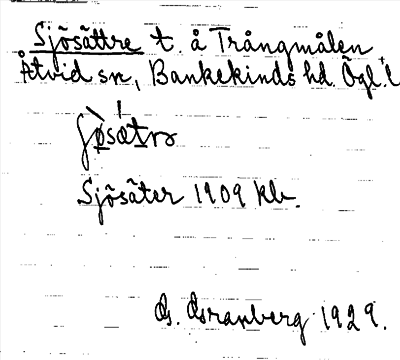 Sjösättre t. å Trångmålen,
Åtvid sn, Bankekinds hd. Ögl. l
Sjösäter 1909 kb.
G. Granberg 1929.